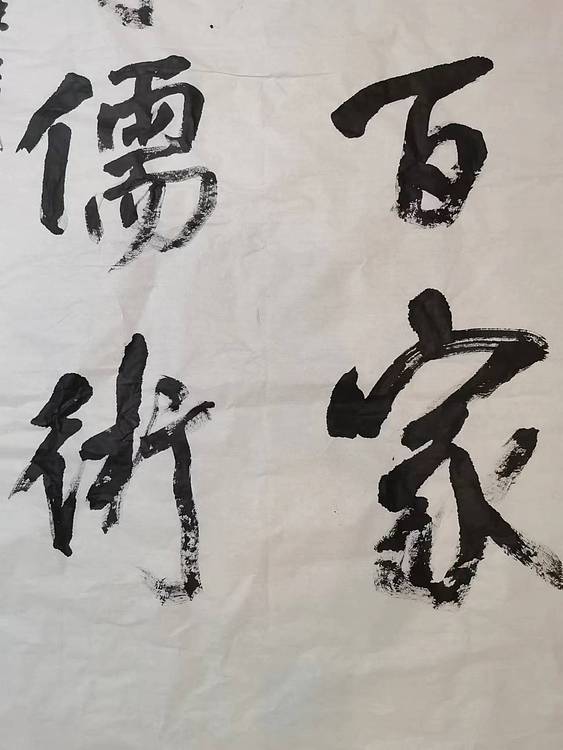 百家
儒術